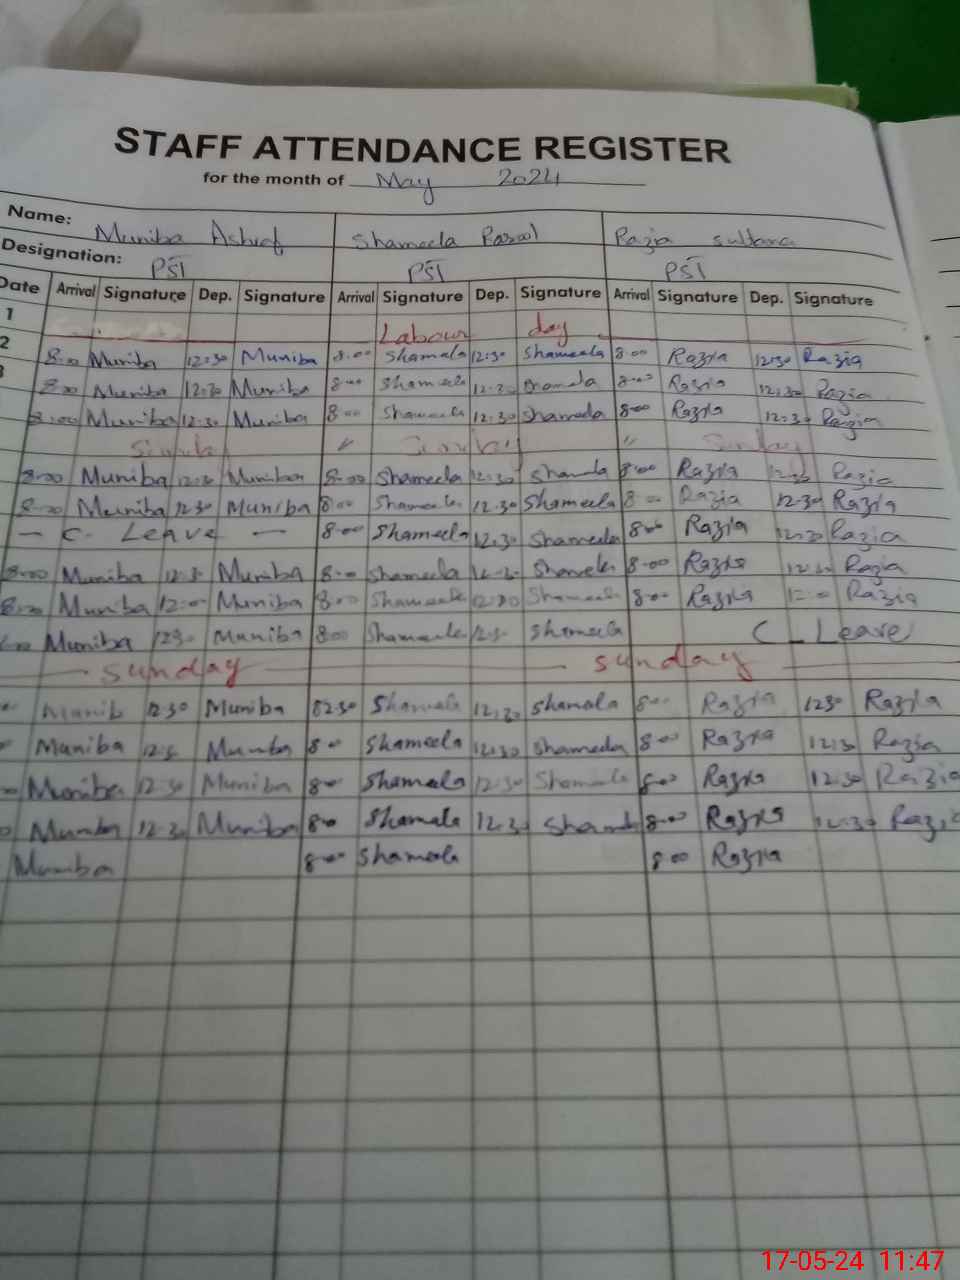 STAFF ATTENDANCE REGISTER
for the month of May 2024
Name: Muniba Ashraf Shameela Rasool Razia sultana
Designation: PST PST PST
Date Arrival Signature Dep. Signature Arrival Signature Dep. Signature Arrival Signature Dep. Signature
1 Labour day
2 8:00 Muniba 12:30 Muniba 8:00 Shameela 12:30 Shameela 8:00 Razia 12:30 Razia
3 8:00 Muniba 12:30 Muniba 8:00 Shameela 12:30 Shameela 8:00 Razia 12:30 Razia
8:00 Muniba 12:30 Muniba 8:00 Shameela 12:30 Shameela 8:00 Razia 12:30 Razia
Sunday " Sunday " Sunday
8:00 Muniba 12:30 Muniba 8:00 Shameela 12:30 Shameela 8:00 Razia 12:30 Razia
8:00 Muniba 12:30 Muniba 8:00 Shameela 12:30 Shameela 8:00 Razia 12:30 Razia
— C. Leave — 8:00 Shameela 12:30 Shameela 8:00 Razia 12:30 Razia
8:00 Muniba 12:30 Muniba 8:00 Shameela 12:30 Shameela 8:00 Razia 12:30 Razia
8:00 Muniba 12:00 Muniba 8:00 Shameela 12:00 Shameela 8:00 Razia 12:00 Razia
Muniba 1230 Muniba 8:00 Shameela 12:30 Shameela C_Leave
— Sunday — — sunday —
Muniba 12:30 Muniba Shameela 12:30 Shamala 8:00 Razia 1230 Razia
Muniba 12:30 Muniba 8:00 Shameela 12:30 Shameela 8:00 Razia 12:30 Razia
Muniba 12:30 Muniba 8:00 Shameela 12:30 Shameela 8:00 Razia 12:30 Razia
Muniba 12:30 Muniba 8:00 Shamala 12:30 Shameela 8:00 Razia 12:30 Razia
Muniba 8:00 Shameela 8:00 Razia
17-05-24 11:47